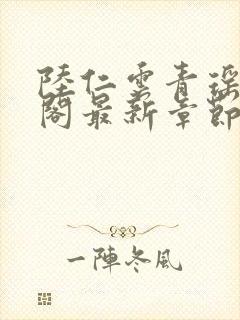 陸仁雲青瑶
閣最新章節
一陣冬風